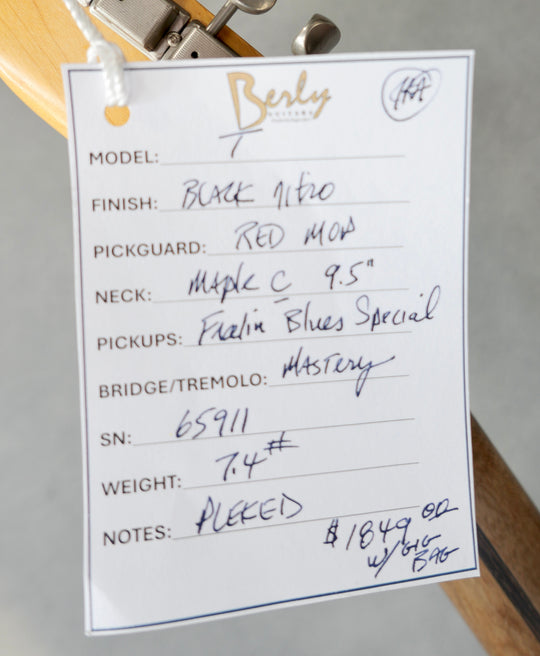 Berly
GUITARS
MODEL: T
FINISH: BLACK NITRO
PICKGUARD: RED MOP
NECK: MAPLE C 9.5"
PICKUPS: Fralin Blues Special
BRIDGE/TREMOLO: MASTERY
SN: 65911
WEIGHT: 7.4#
NOTES: PLEKED
$1849 00
w/ GIG
BAG